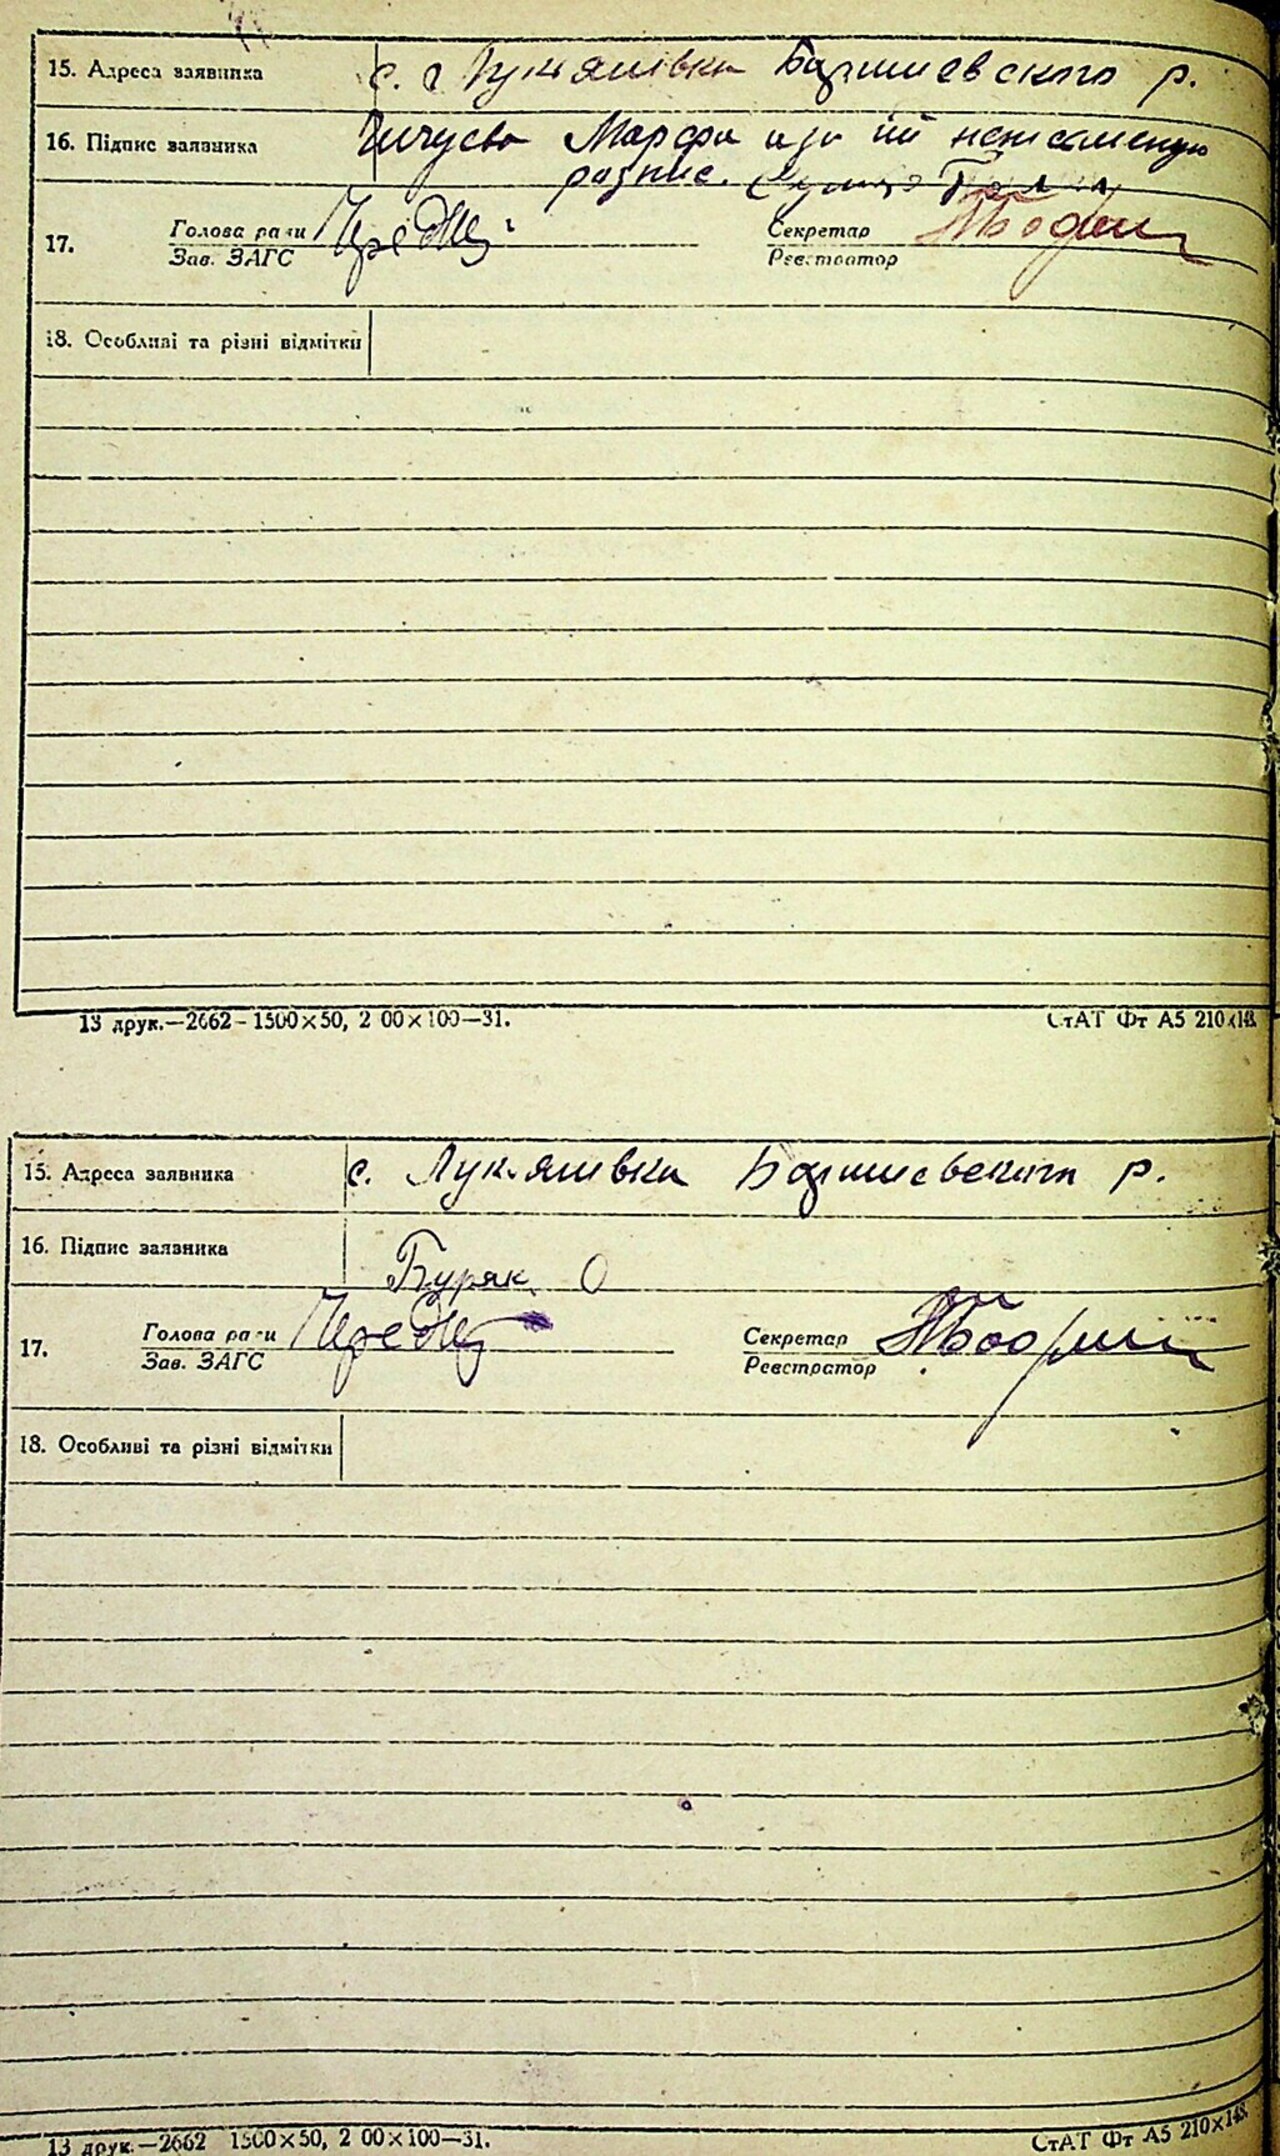 15. Адреса заявника с. Лукяшівка Баришевского р.
16. Підпис заявника Марфа а за її неписьменую
розпис.
Голова ради Секретар
17.
Зав. ЗАГС Реєстратор
18. Особливі та різні відмітки
13 друк.—2662—1500×50, 2 00×100—31. СтАТ Фт А5 210×148
15. Адреса заявника с. Лукяшівка Баришевского р.
16. Підпис заявника Буряк О
Голова ради Секретар
17.
Зав. ЗАГС Реєстратор
18. Особливі та різні відмітки
13 друк.—2662 1500×50, 2 00×100—31. СтАТ Фт А5 210×148